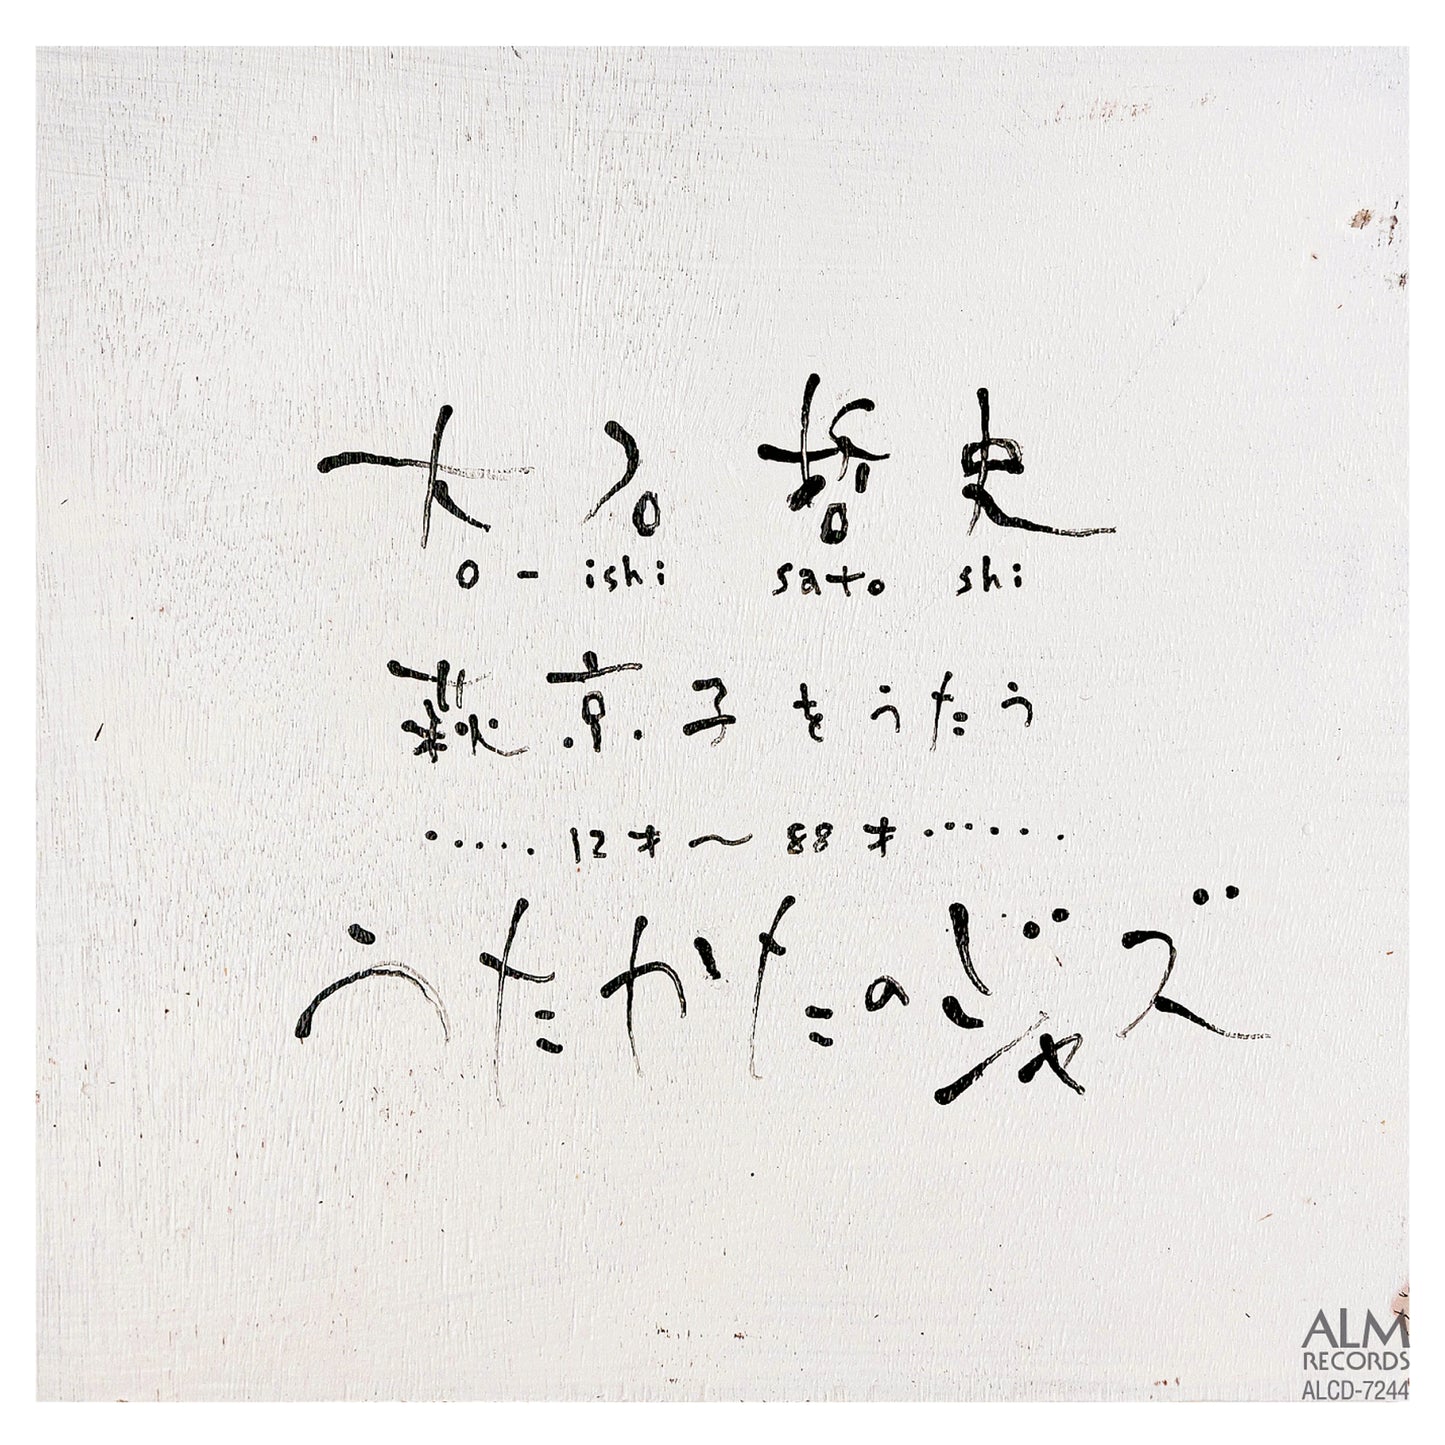 大石哲史
o-ishi satoshi
萩京子をうたう
・・・・・12才〜88才・・・・・・
うたかたのジャズ
ALM
RECORDS
ALCD-7244